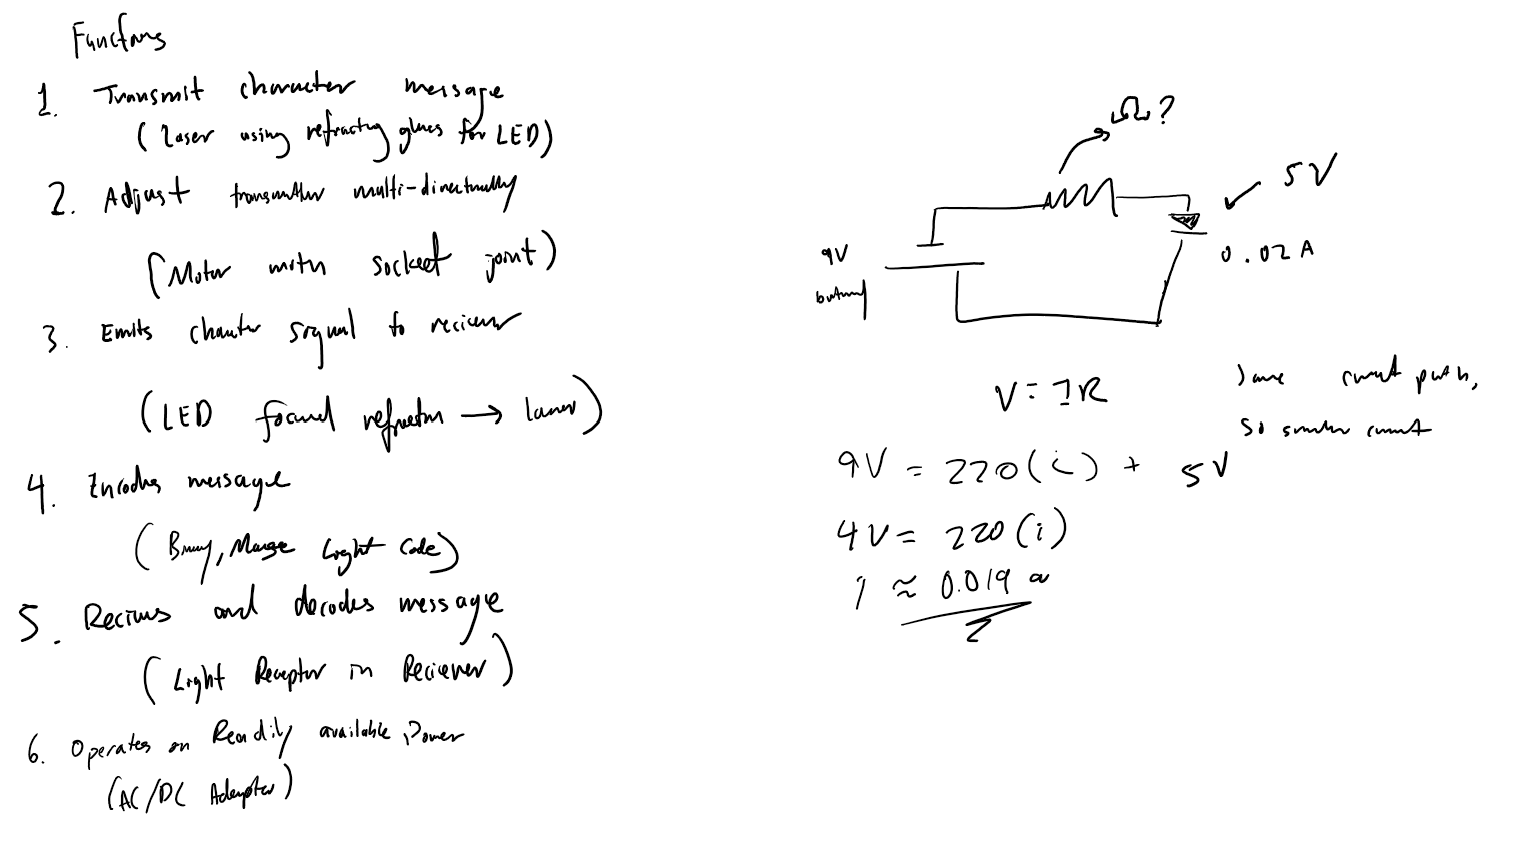 Functions
1. Transmit character message
(Laser using refracting glass for LED)
2. Adjust transmitter multi-directionally
(Motor with socket joint)
3. Emits signal to reciever
(LED focused → laser)
4. Encodes message
(Binary, Morse Light Code)
5. Recieves and decodes message
(Light Receptor in Reciever)
6. Operates on Readily available Power
(AC/DC Adapter)
Ω?
5V
9V
battery
0.02A
V = IR
Same current path,
so similar current
9V = 220(i) + 5V
4V = 220(i)
i ≈ 0.019 a